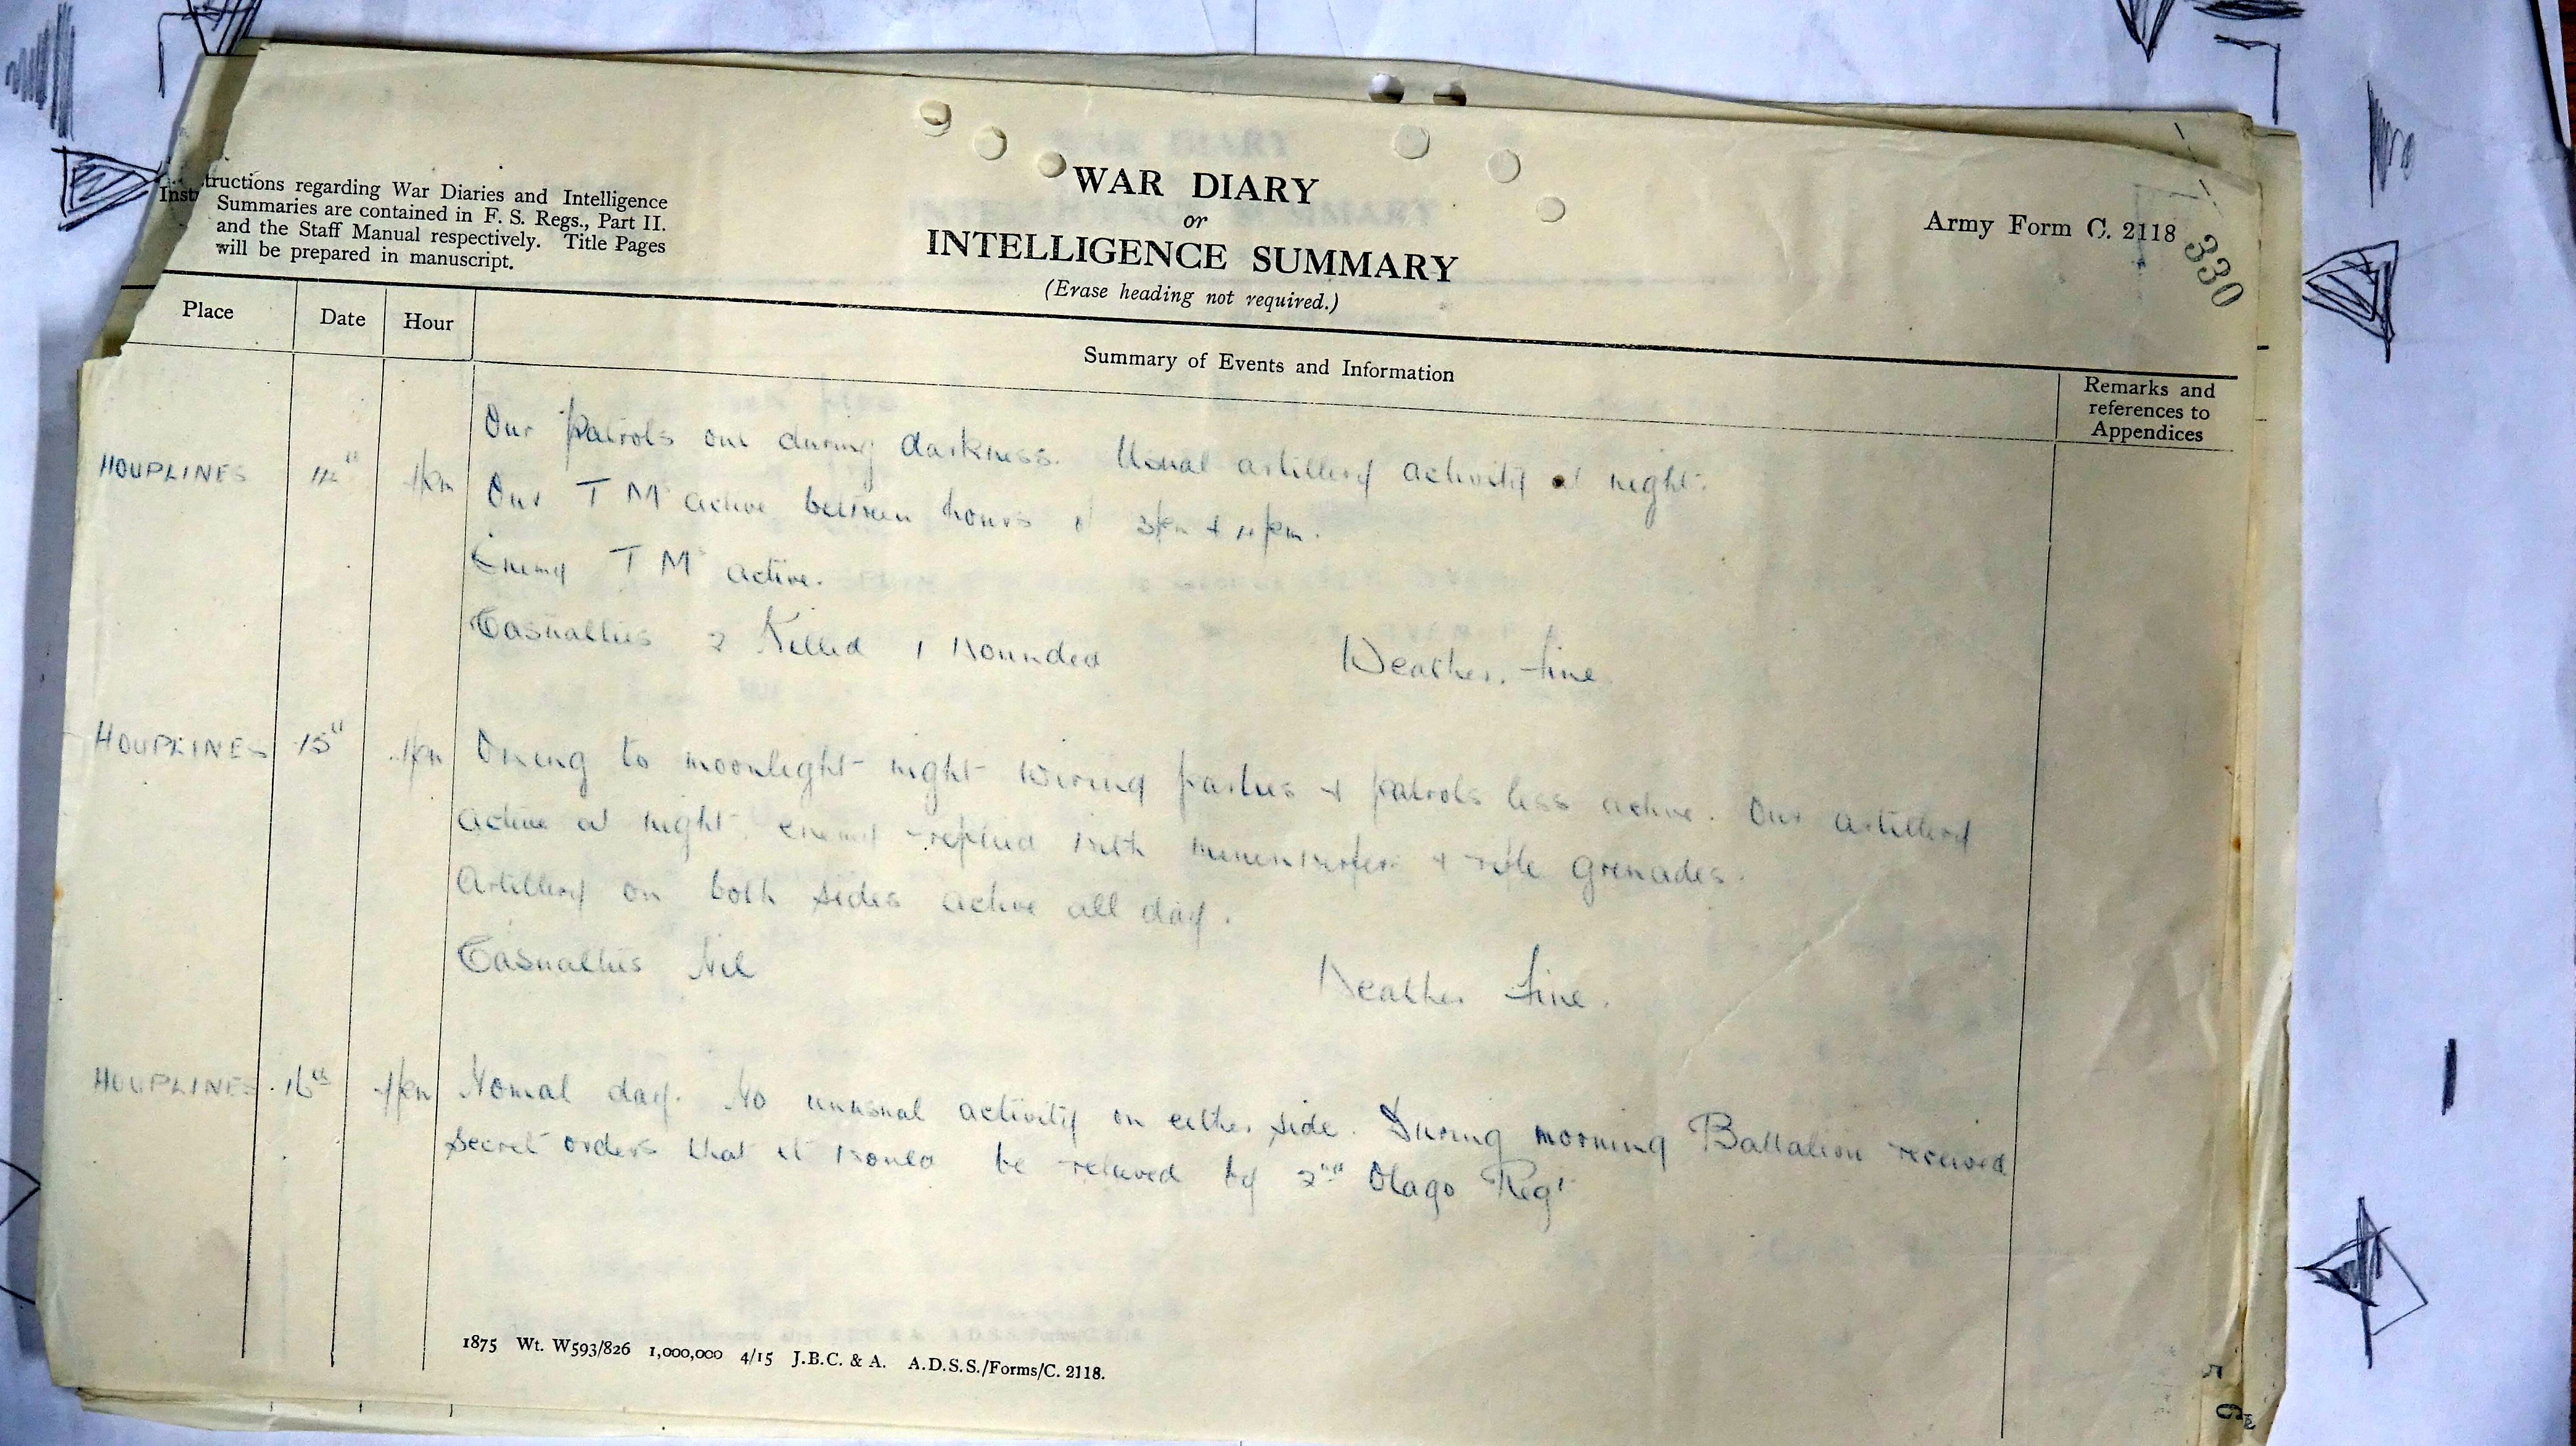 Instructions regarding War Diaries and Intelligence
Summaries are contained in F. S. Regs., Part II.
and the Staff Manual respectively. Title Pages
will be prepared in manuscript.
WAR DIARY
or
INTELLIGENCE SUMMARY
(Erase heading not required.)
Army Form C. 2118
330
Place Date Hour Summary of Events and Information Remarks and references to Appendices
Our patrols out during darkness. Usual artillery activity at night.
HOUPLINES 14th pm Our T M's active between hours of 3pm & 11pm.
Enemy T M's active.
Casualties 2 Killed 1 Wounded Weather. fine
HOUPLINES 15th pm Owing to moonlight night wiring parties & patrols less active. Our artillery
active at night. enemy replied with minenwerfer & rifle grenades.
Artillery on both sides active all day.
Casualties Nil Weather fine.
HOUPLINES 16th pm Nomal day. No unusual activity on either side. During morning Battalion received
secret orders that it would be relieved by 2nd Otago Regt
1875 Wt. W593/826 1,000,000 4/15 J.B.C. & A. A.D.S.S./Forms/C. 2118.